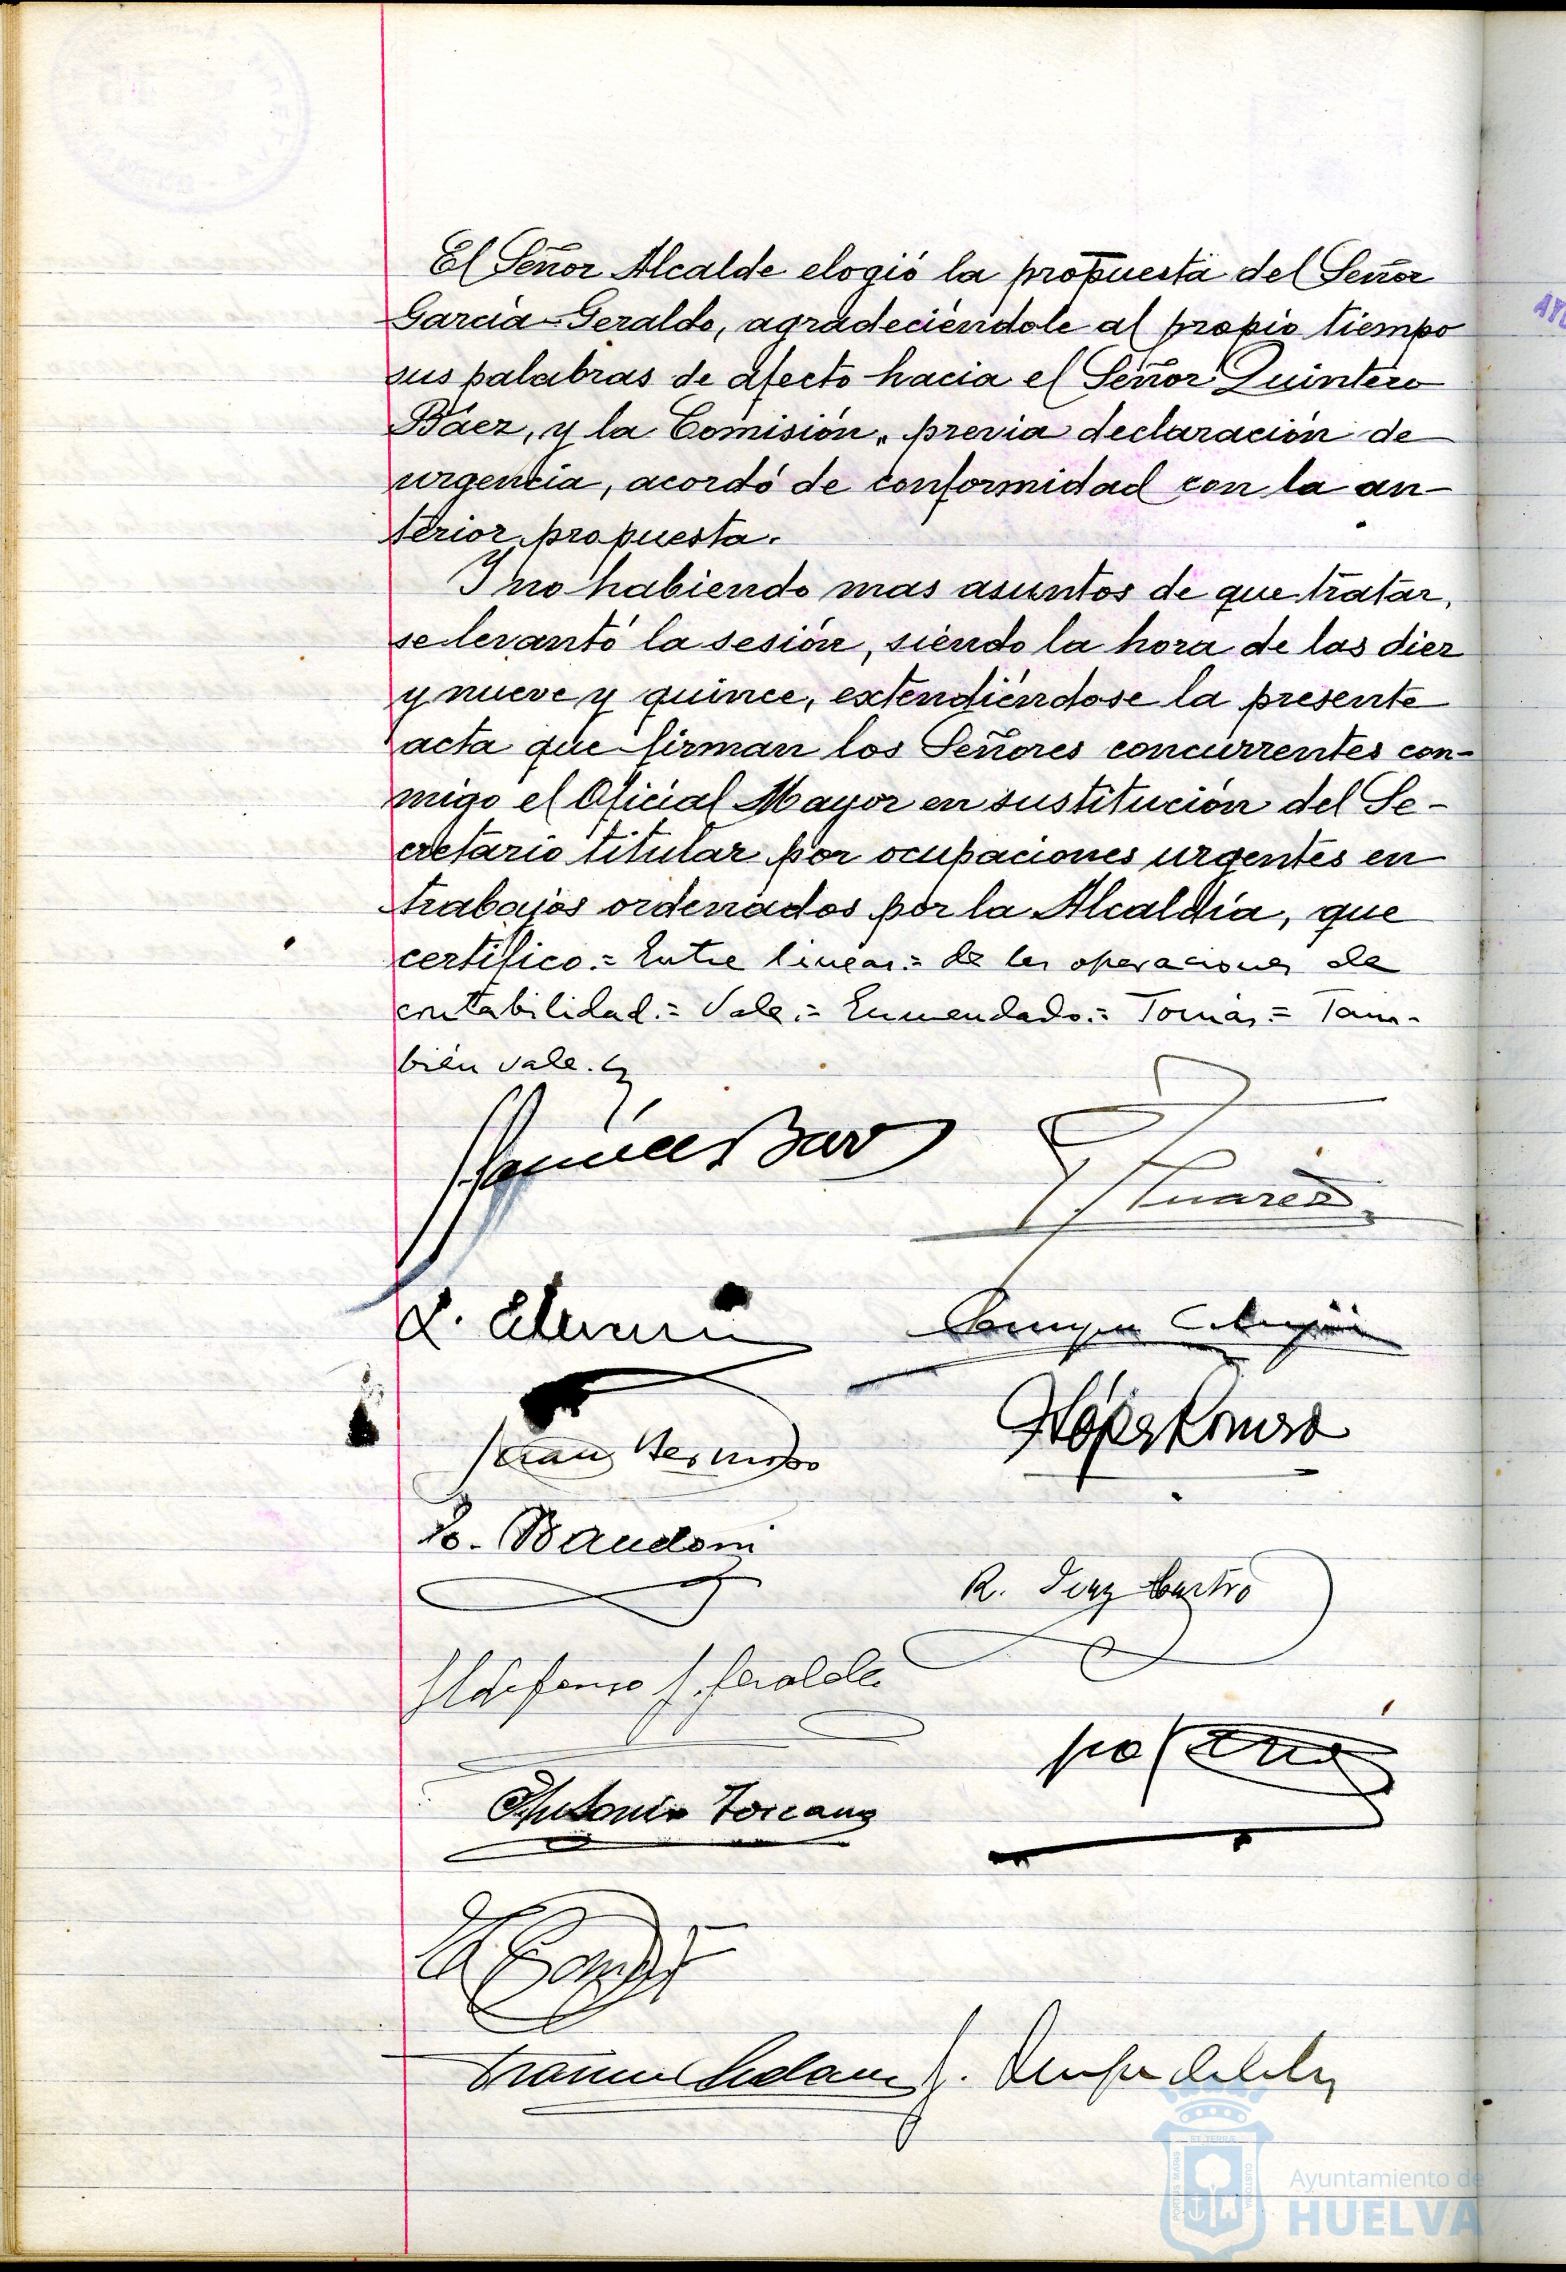 El Señor Alcalde elogió la propuesta del Señor
García-Geraldo, agradeciéndole al propio tiempo
sus palabras de afecto hacia el Señor Quintero
Báez, y la Comisión, previa declaración de
urgencia, acordó de conformidad con la an-
terior propuesta.
Y no habiendo mas asuntos de que tratar,
se levantó la sesión, siendo la hora de las diez
y nueve y quince, extendiéndose la presente
acta que firman los Señores concurrentes con-
migo el Oficial Mayor en sustitución del Se-
cretario titular por ocupaciones urgentes en
trabajos ordenados por la Alcaldía, que
certifico.= Entre lineas.= de las operaciones de
contabilidad.= Vale.= Enmendado.= Tomás.= Tam-
bién vale.
Suarez
R. Diaz Castro
Ildefonso G. Geraldo
Antonio Toscano
ET TERRÆ
PORTUS MARIS
CUSTODIA
Ayuntamiento de
HUELVA